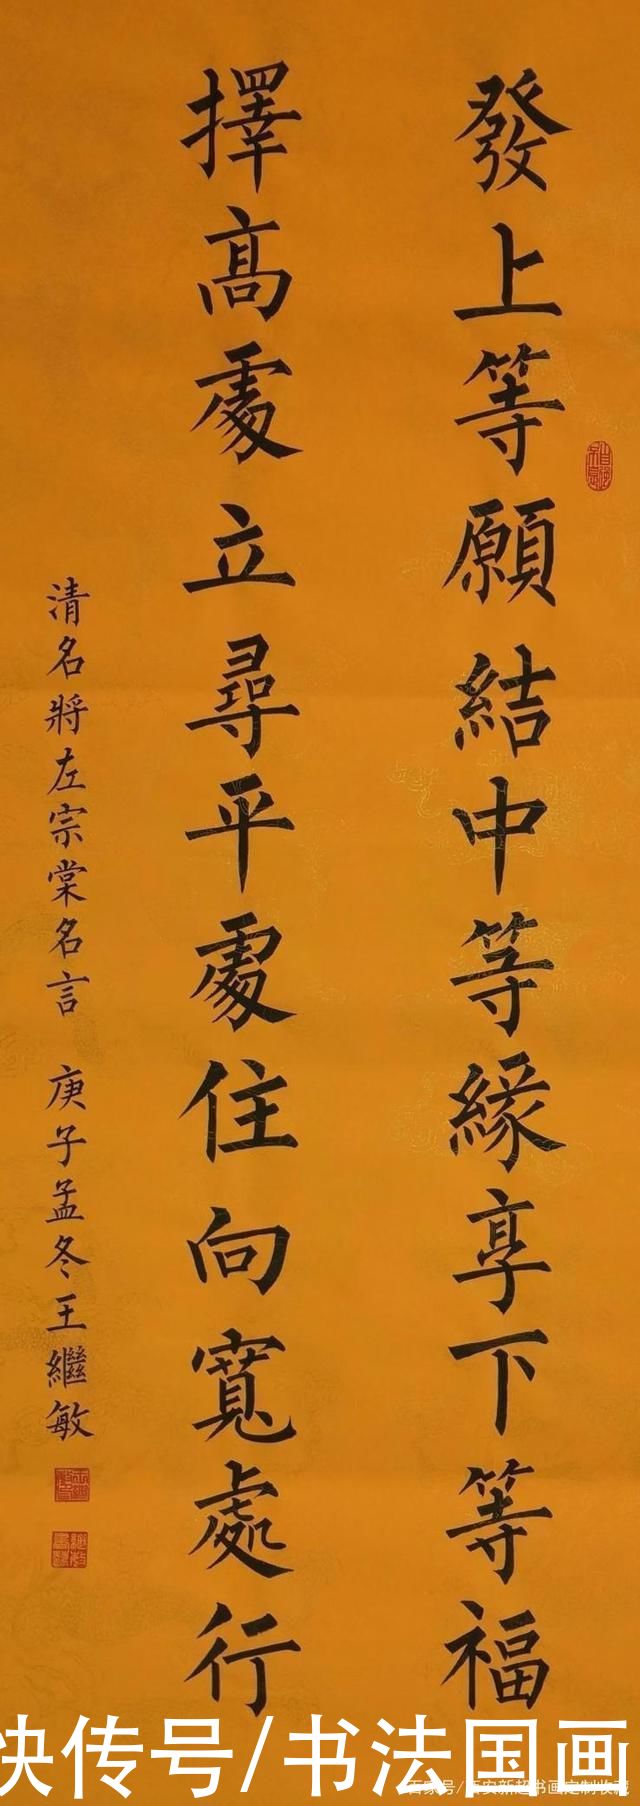 發上等願結中等緣享下等福
擇高處立尋平處住向寬處行
清名將左宗棠名言 庚子孟冬王繼敏
快传号/书法国画
百家号/西安新超书画定制收藏